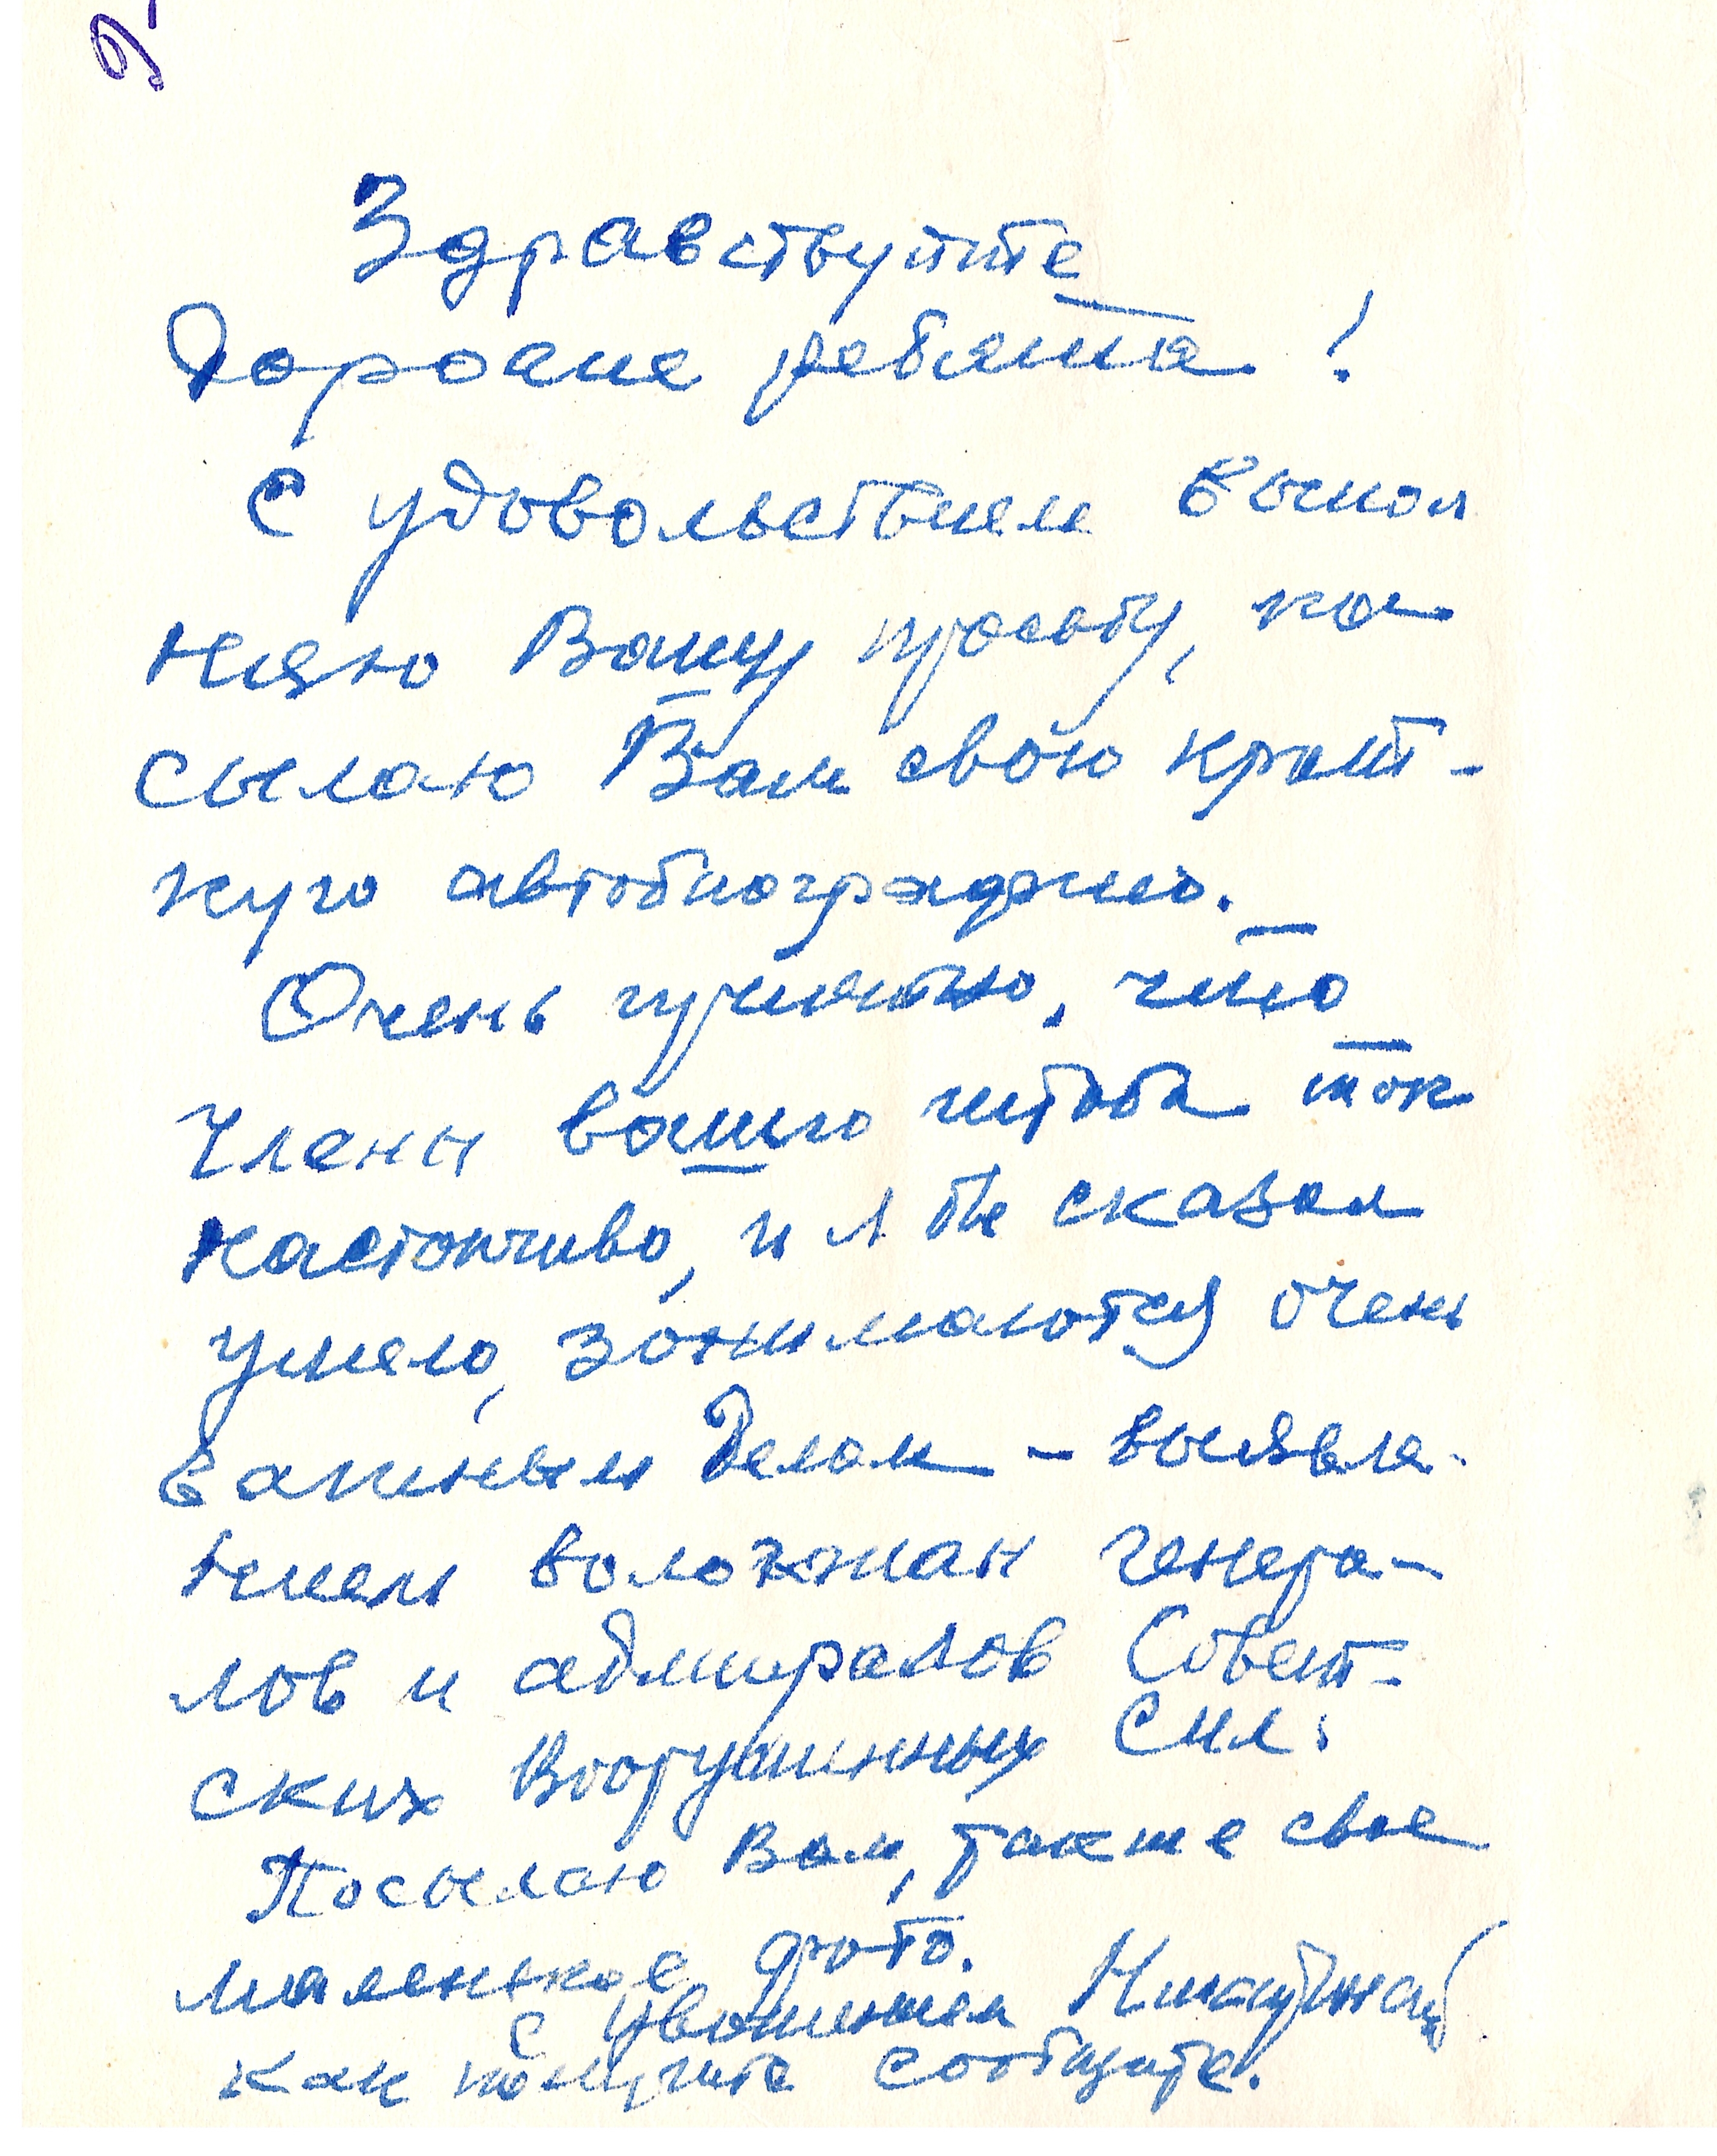 Здравствуйте
Дорогие ребята!
С удовольствием выпол
няю Вашу просьбу, по
сылаю Вам свою крат-
кую автобиографию.
Очень приятно, что
члены вашего штаба так
настойчиво, и я бы сказал
умело, занимаются очень
важным делом - выявле-
нием воложжан генера-
лов и адмиралов Совет-
ских Вооруженных Сил.
Посылаю Вам, также свое
маленькое фото.
С уважением
как получите сообщите.